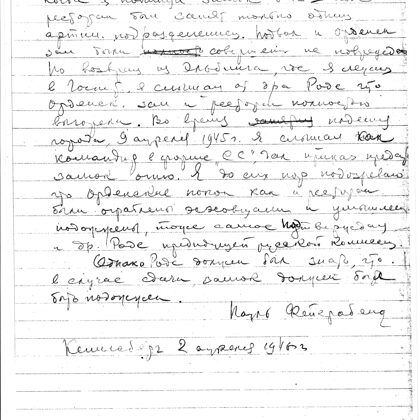 ресторан был занят только одним
артил. подразделением. Подвал и орденск
зал были совершенно не поврежде
По возвращ из Эльбинга, где я лежал
в Госпит. я слышал от д-ра Роде что
орденск. зал и ресторан полностью
выгорели. Во время падения
города, 9 апреля 1945 г. я слышал как
командир в форме „СС" дал приказ преда
замок огню. Я до сих пор подозреваю
что орденские покои как и ресторан
были ограблены эсэсовцами и умышлен
подожжены, тоже самое подтвердил
и др. Роде предидущей русской комиссии.
Однако Роде должен был знать, что
в случае сдачи замок должен был
быть подожжен.
Пауль Фейерабенд
Кенигсберг 2 апреля 1946 г.